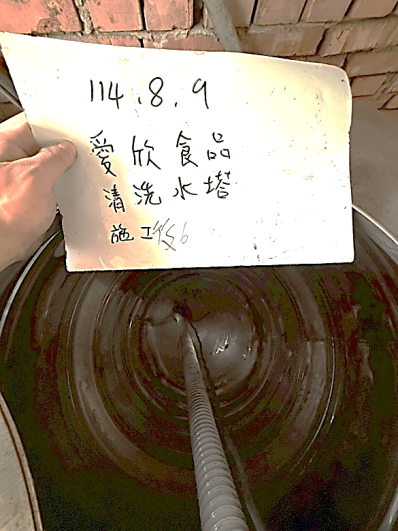 114.8.9
愛欣食品
清洗水塔
施工後6